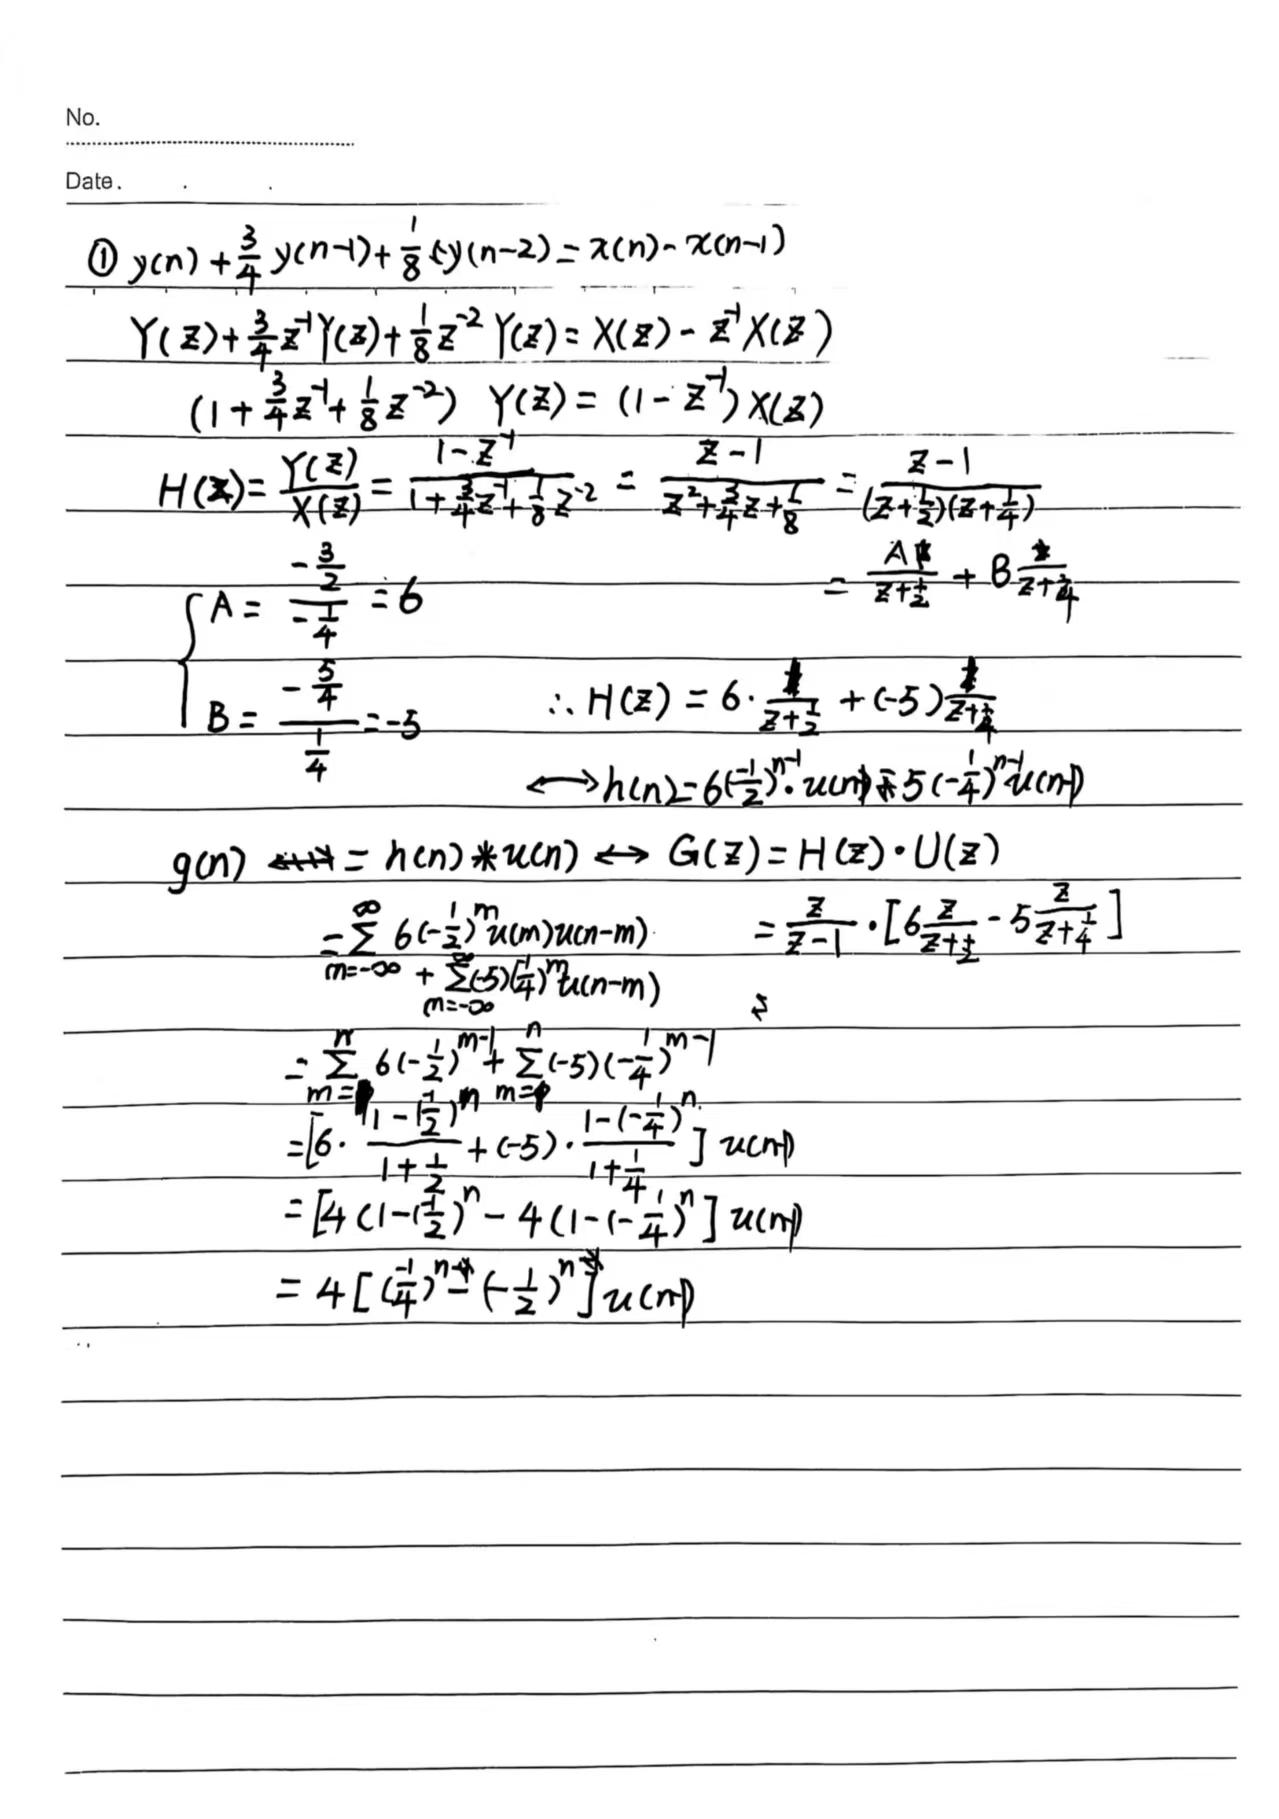 No.
Date.
① y(n) + 3/4 y(n-1) + 1/8 y(n-2) = x(n) - x(n-1)
Y(z) + 3/4 z^-1 Y(z) + 1/8 z^-2 Y(z) = X(z) - z^-1 X(z)
(1 + 3/4 z^-1 + 1/8 z^-2) Y(z) = (1 - z^-1) X(z)
H(z) = Y(z)/X(z) = (1 - z^-1)/(1 + 3/4 z^-1 + 1/8 z^-2) = (z-1)/(z^2 + 3/4 z + 1/8) = (z-1)/((z+1/2)(z+1/4))
= A/(z+1/2) + B /(z+1/4)
{ A = (-3/2)/(-1/4) = 6
B = (-5/4)/(1/4) = -5
∴ H(z) = 6 · 1/(z+1/2) + (-5) 1/(z+1/4)
⟷ h(n) = 6(-1/2)^n-1 · u(n-1) - 5(-1/4)^n-1 u(n-1)
g(n) = h(n) * u(n) ↔ G(z) = H(z) · U(z)
= Σ_{m=-∞}^{∞} 6(-1/2)^m u(m)u(n-m)
+ Σ_{m=-∞}^{∞} (-5)(-1/4)^m u(n-m)
= z/(z-1) · [6 z/(z+1/2) - 5 z/(z+1/4)]
= Σ_{m=1}^{n} 6(-1/2)^m-1 + Σ_{m=1}^{n} (-5)(-1/4)^m-1
= [6 · (1-(-1/2)^n)/(1+1/2) + (-5) · (1-(-1/4)^n)/(1+1/4)] u(n-1)
= [4(1-(-1/2)^n - 4(1-(-1/4)^n] u(n-1)
= 4[(-1/4)^n - (-1/2)^n] u(n-1)